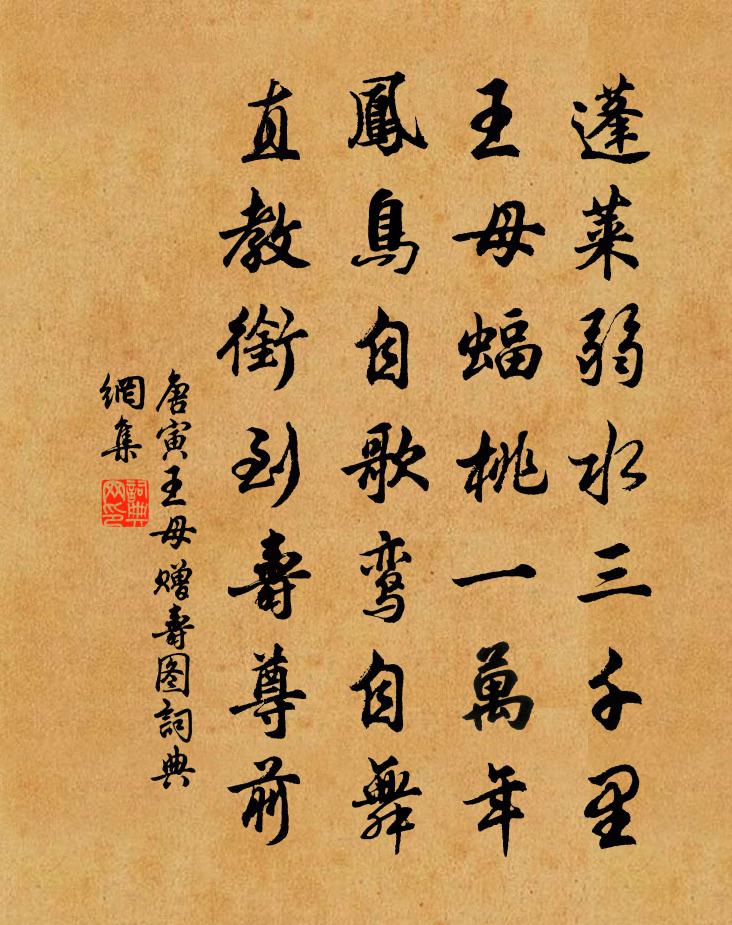 蓬萊弱水三千里
王母蝠桃一萬年
鳳鳥自歌鸾自舞
直教銜到壽尊前
唐寅王母赠壽图詞典
網集
詞典網印